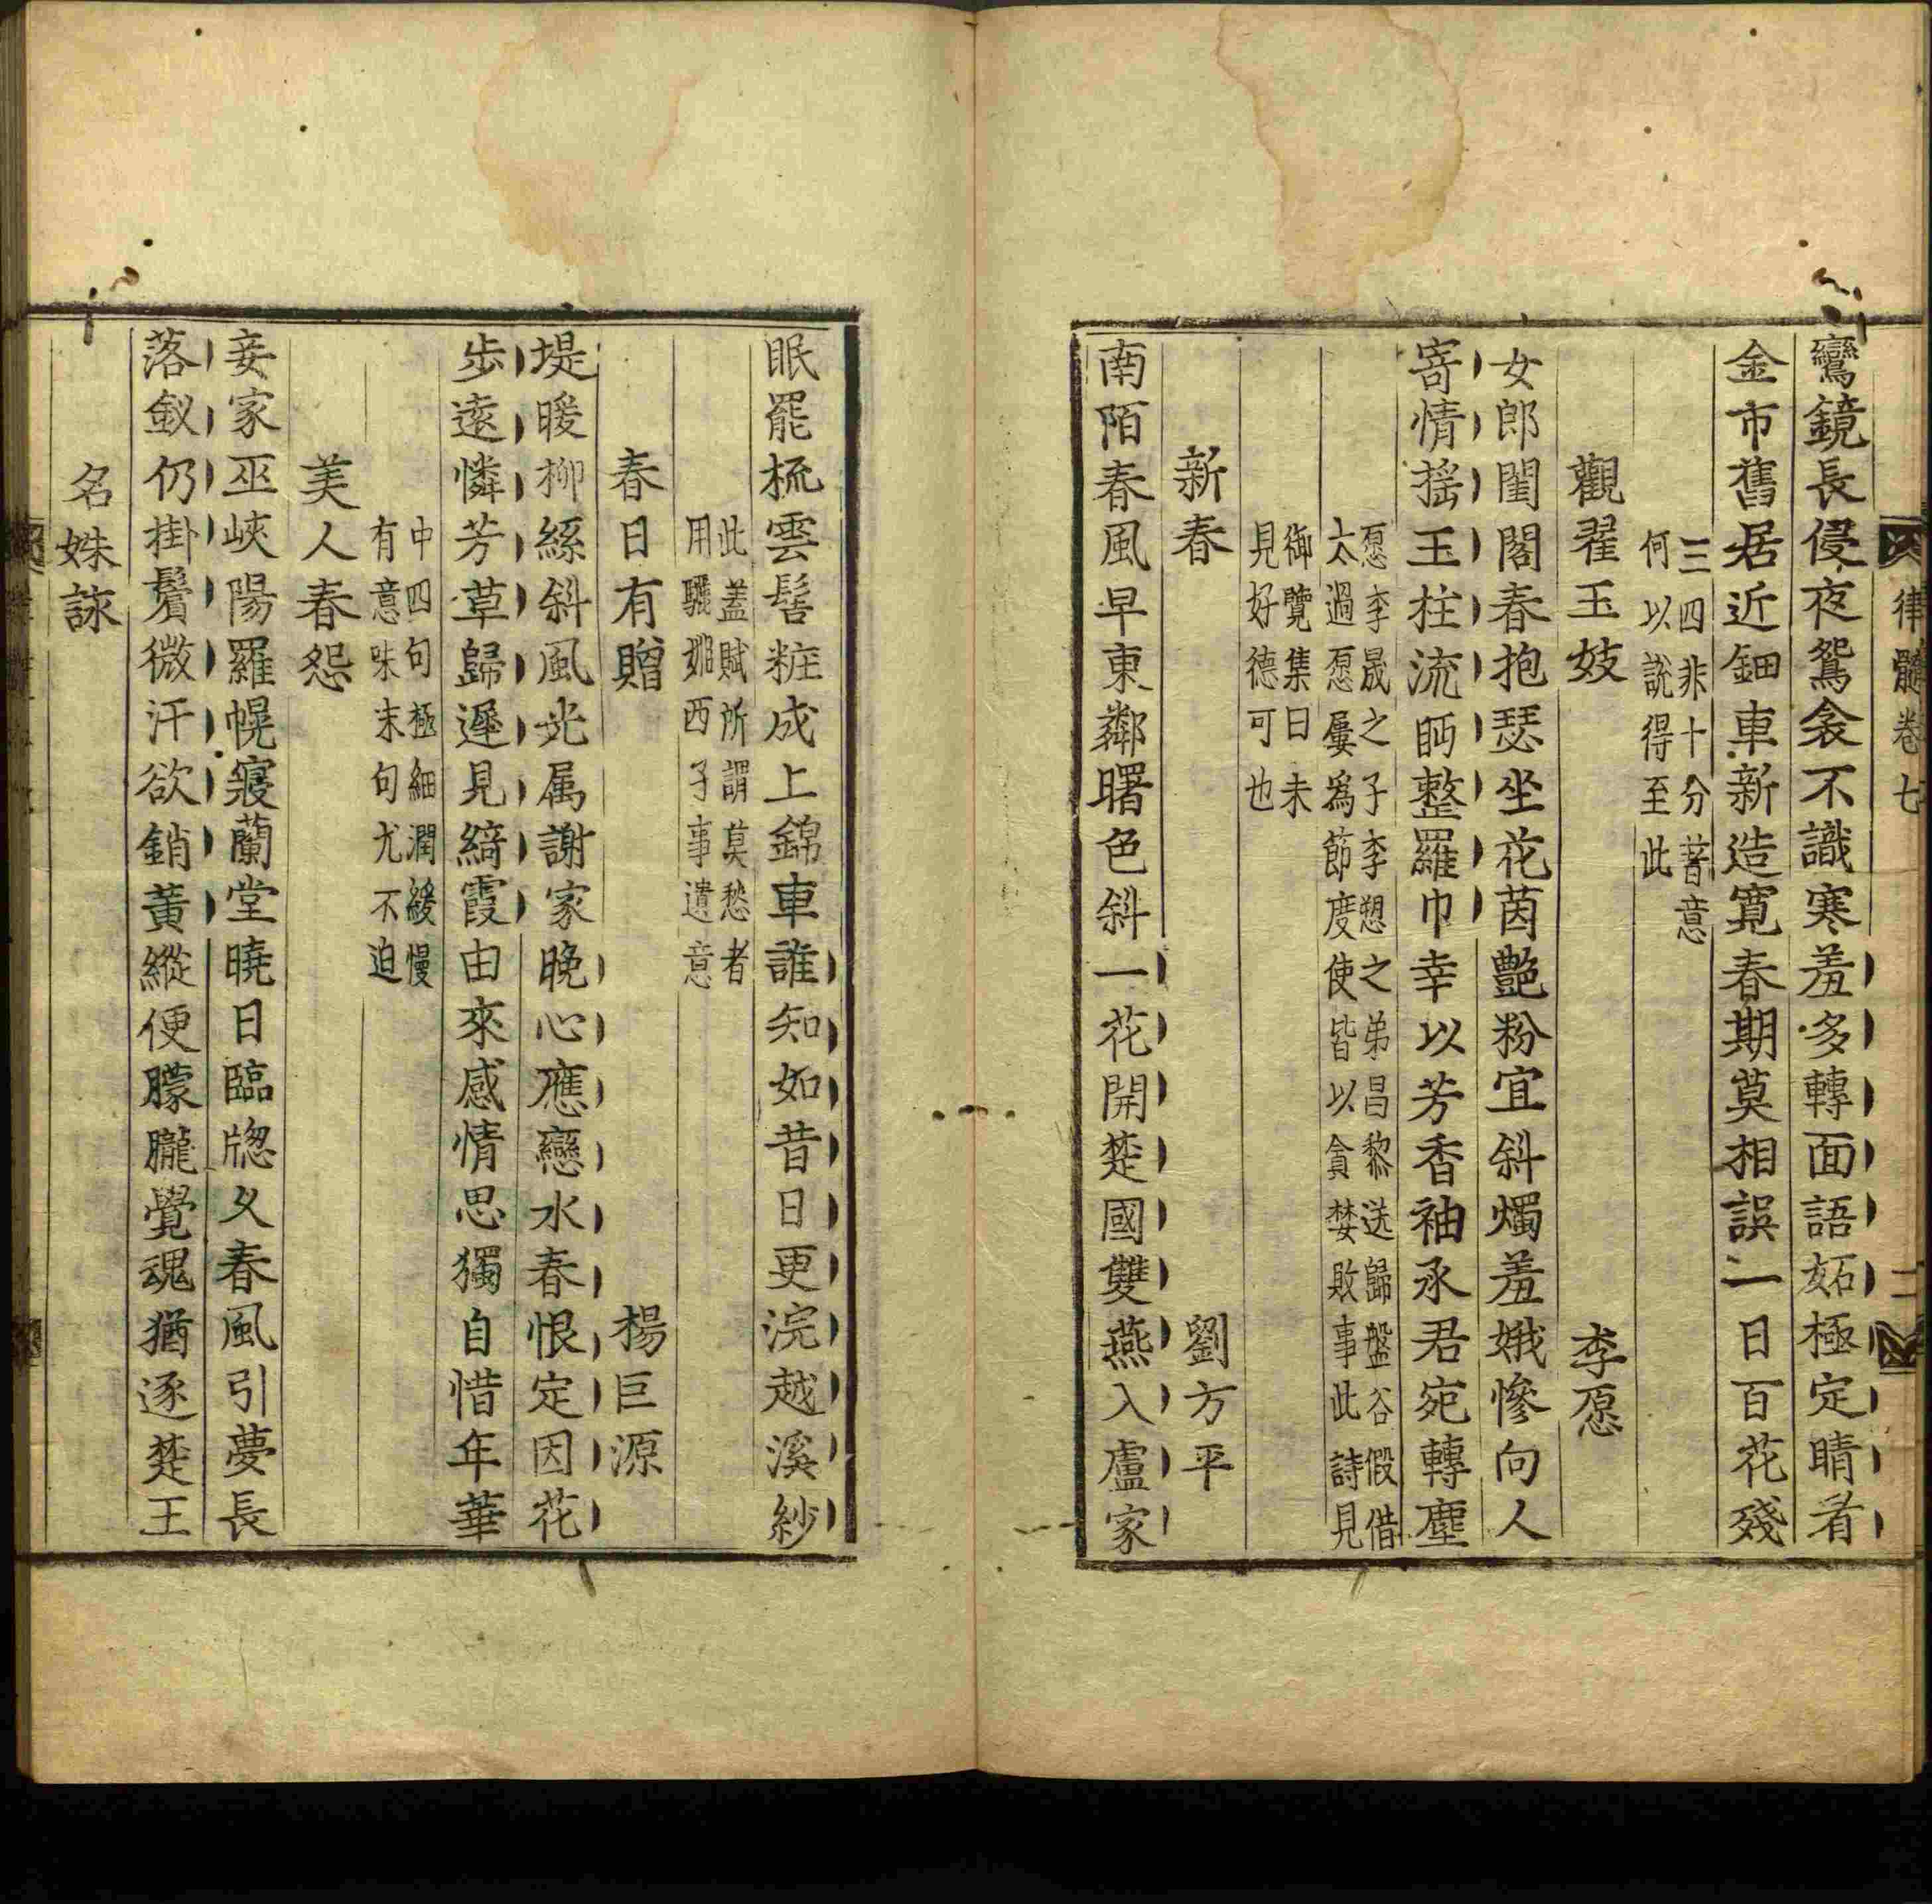 律髓卷七
二
鸞鏡長侵夜鴛衾不識寒羞多轉面語妬極定睛看
金市舊居近鈿車新造寬春期莫相誤一日百花殘
三四非十分著意
何以說得至此
觀翟玉妓
李愿
女郎閨閣春抱瑟坐花茵艷粉宜斜燭羞娥慘向人
寄情搖玉柱流眄整羅巾幸以芳香袖承君宛轉塵
愿李晟之子李愬之弟昌黎送歸盤谷假借
太過愿屢為節度使皆以貪婪敗事此詩見
御覽集曰未
見好德可也
新春
劉方平
南陌春風早東鄰曙色斜一花開楚國雙燕入盧家
眠罷梳雲髻粧成上錦車誰知如昔日更浣越溪紗
此蓋賦所謂莫愁者
用驪嫺西子事遺意
春日有贈
楊巨源
堤暖柳絲斜風光属謝家晚心應戀水春恨定因花
步遠憐芳草歸遲見綺霞由來感情思獨自惜年華
中四句極細潤緩慢
有意味末句尤不迫
美人春怨
妾家巫峽陽羅幌寢蘭堂曉日臨牎久春風引夢長
落釵仍掛鬢微汗欲銷黃縱便朦朧覺魂猶逐楚王
名姝詠